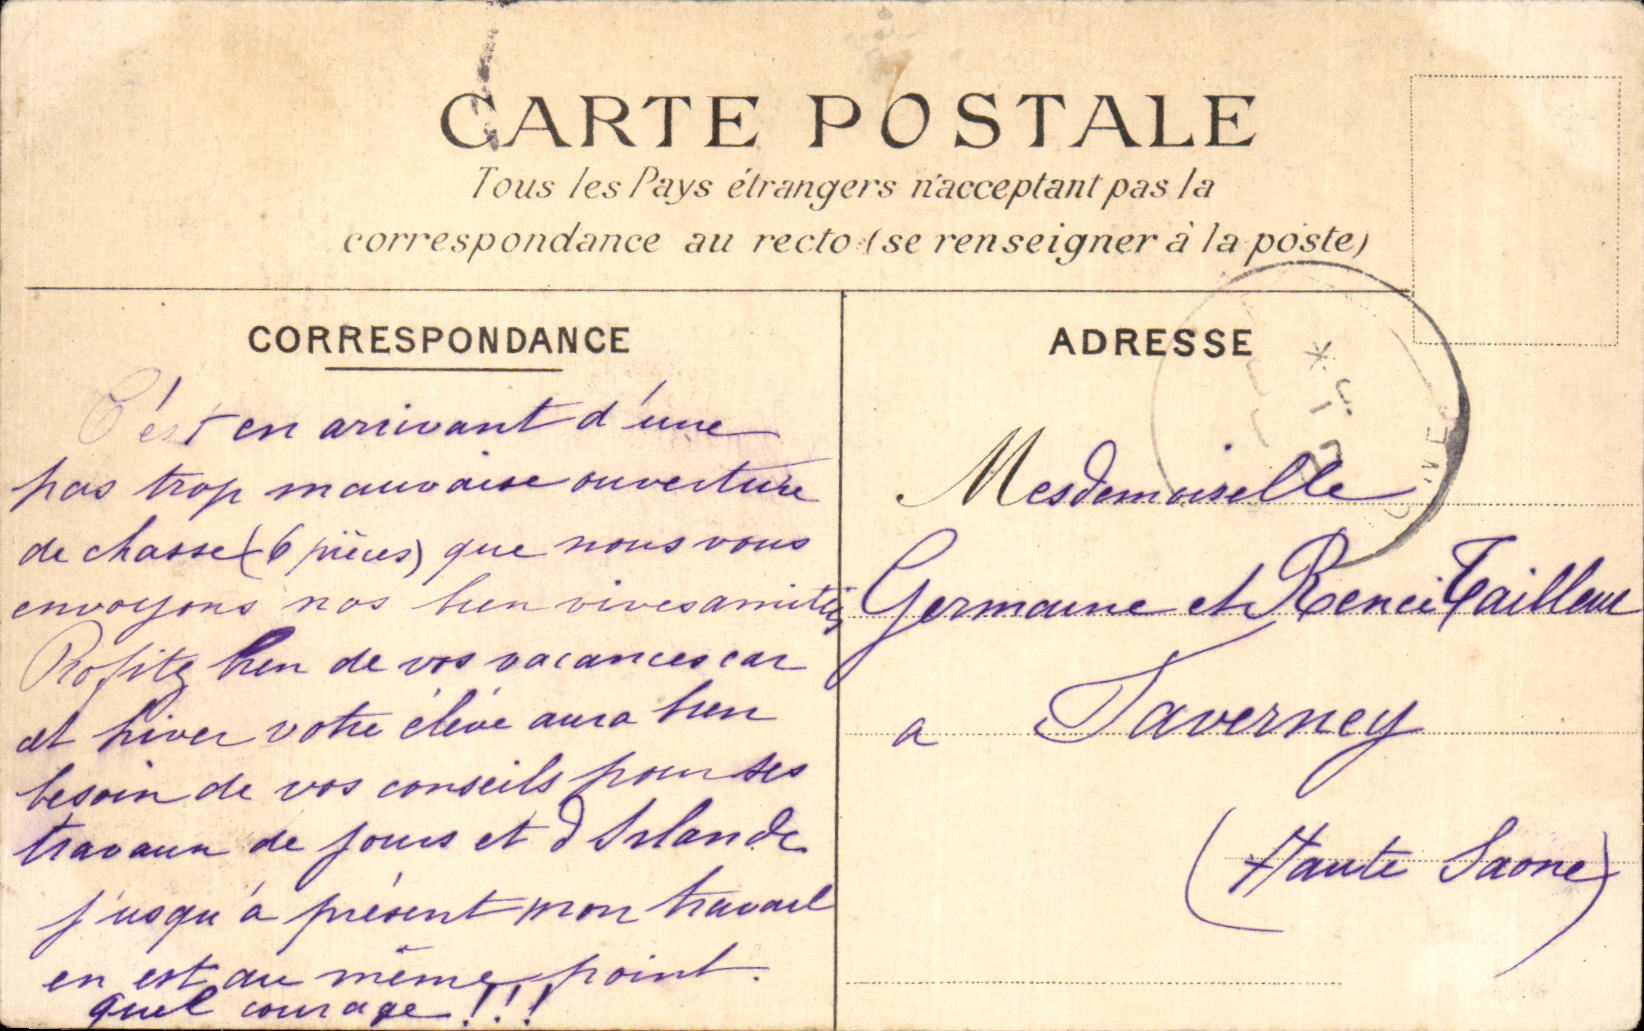 CARTE POSTALE
Tous les Pays étrangers n'acceptant pas la
correspondance au recto (se renseigner à la poste)
CORRESPONDANCE
ADRESSE
C'est en arrivant d'une
pas trop mauvaise ouverture
de chasse (6 pièces) que nous vous
envoyons nos bien vives amitiés
Profitez bien de vos vacances car
cet hiver votre élève aura bien
besoin de vos conseils pour ses
travaux de jours et d'Irlande
jusqu'à présent mon travail
en est au même point.
quel courage !!!
Mesdemoiselle
Germaine et Renée Tailleur
a Faverney
(Haute Saone)